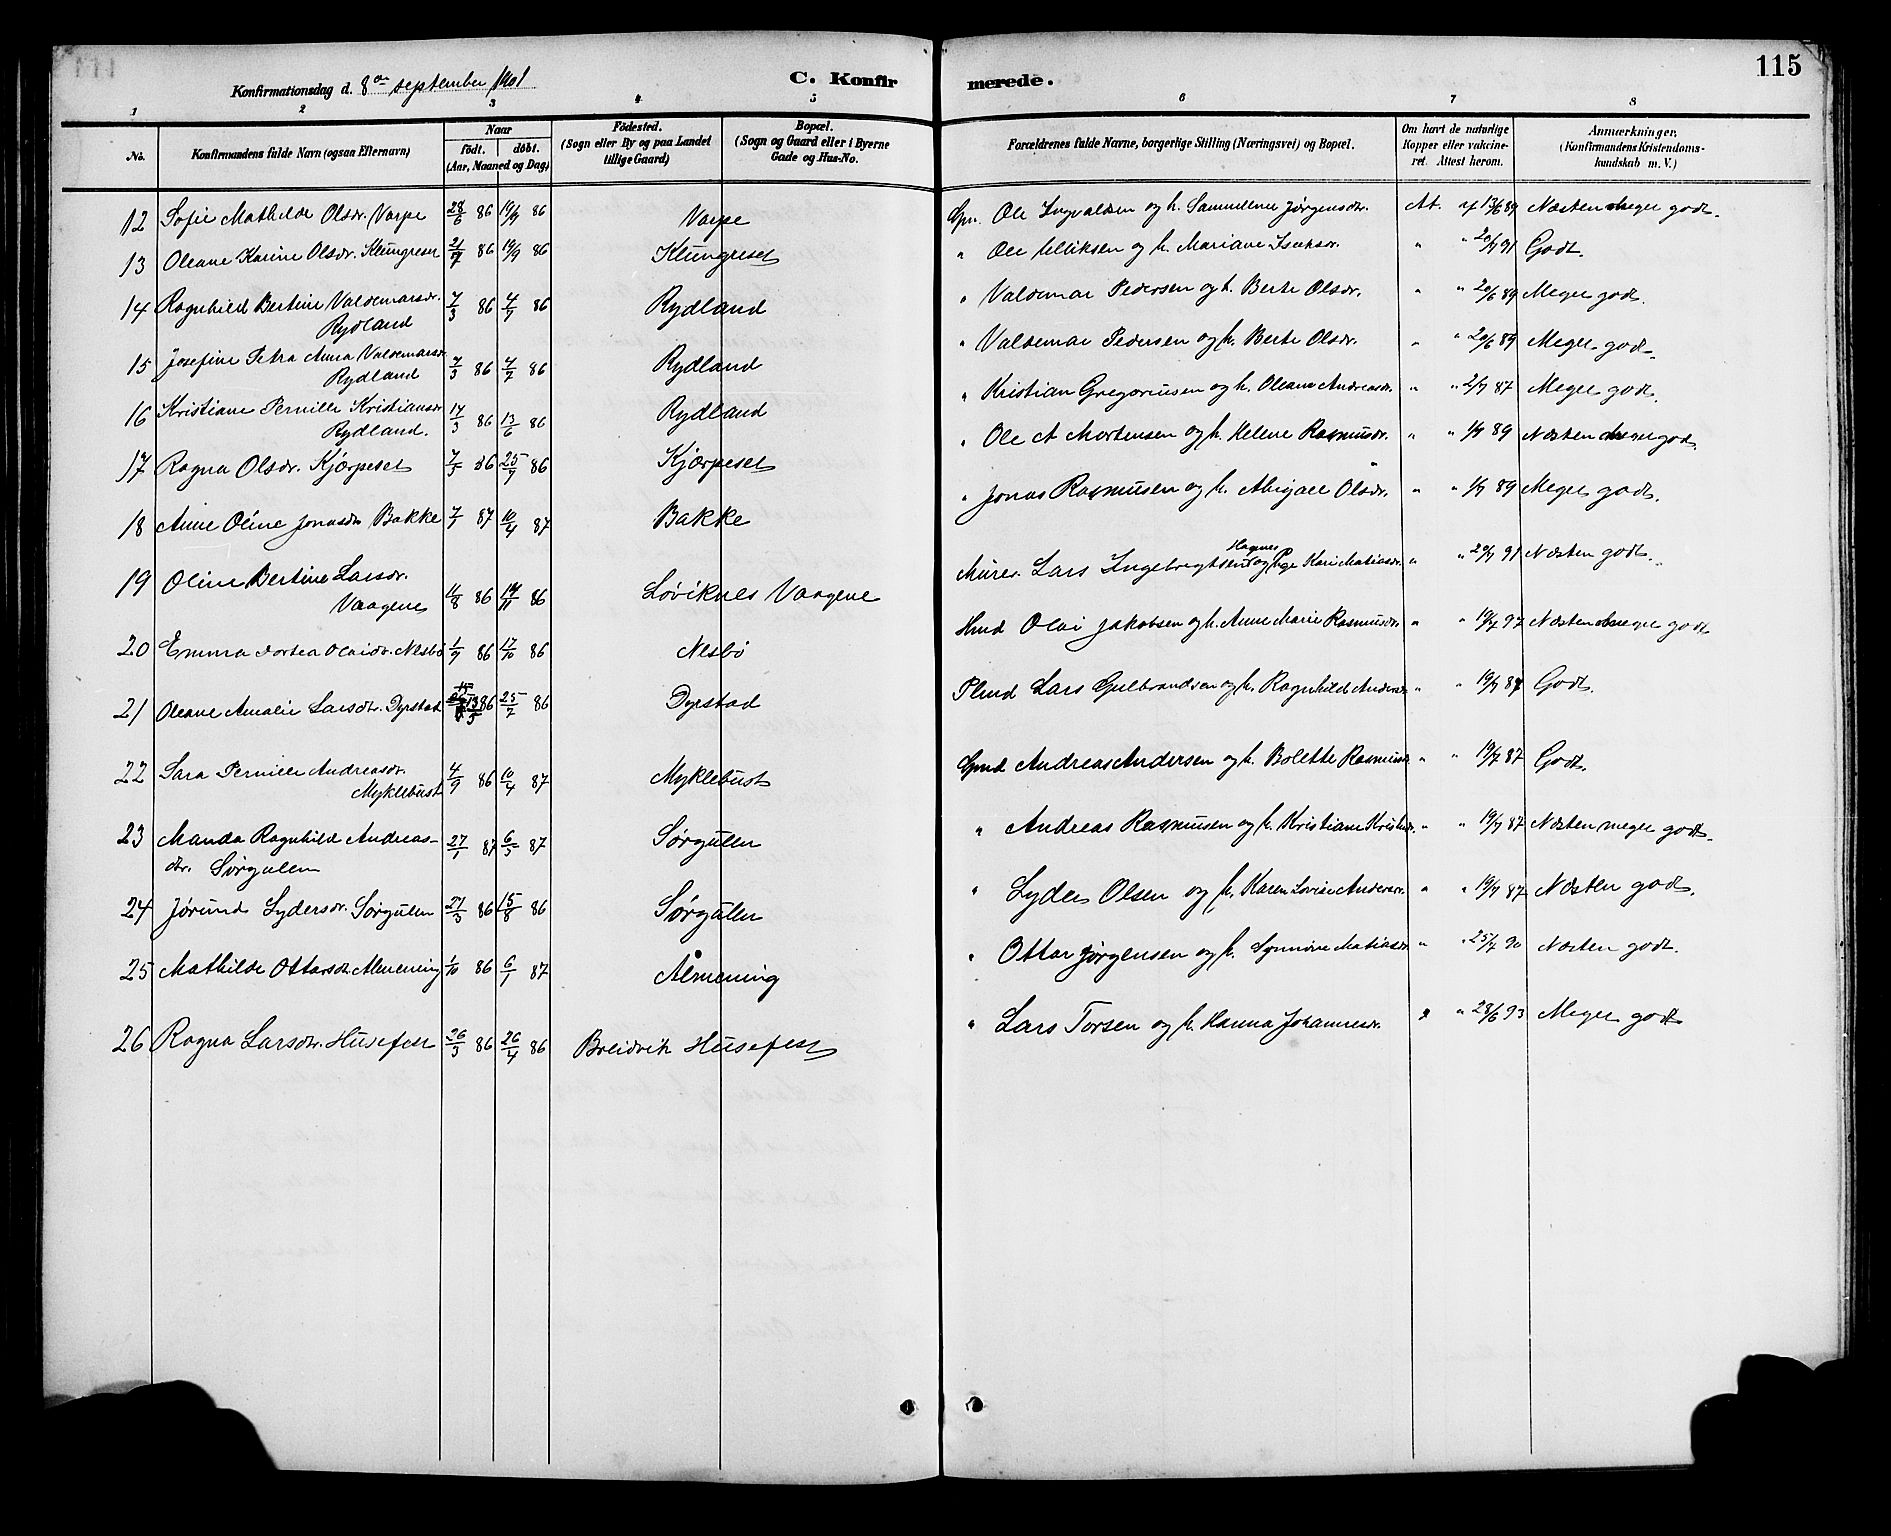 115
Konfirmationsdag d. 8de september 1901
C. Konfirmerede.
1 2 3 4 5 6 7 8
No.
Konfirmandens fulde Navn (ogsaa Efternavn)
Naar
födt. döbt.
(Aar, Maaned og Dag)
Födested.
(Sogn eller By og paa Landet
tillige Gaard)
Bopæl.
(Sogn og Gaard eller i Byerne
Gade og Hus-No.
Forældrenes fulde Navne, borgerlige Stilling (Næringsvei) og Bopæl.
Om havt de naturlige
Kopper eller vakcine-
ret. Attest herom.
Anmærkninger.
(Konfirmandens Kristendoms-
kundskab m. V.)
12 Sofie Mathilde Olsdr. Varpe 28/6 86 19/9 86 Varpe Gm. Ole Ingvaldsen og h. Samueline Jørgensdr. At. af 13/6 89 Næsten meget godt.
13 Oleane Karine Olsdr. Klungreset 21/7 86 19/9 86 Klungreset " Ole Ulriksen og h. Mariane Isaksdr. " " 20/7 91 Godt.
14 Ragnhild Bertine Valdemarsdr.
Rydland 7/3 86 4/7 86 Rydland " Valdemar Pedersen og h. Berte Olsdr. " " 20/6 89 Meget godt.
15 Josefine Petra Anna Valdemarsdr.
Rydland 7/3 86 4/7 86 Rydland " Valdemar Pedersen og h. Berte Olsdr. " " 20/6 89 Meget godt.
16 Kristiane Pernille Kristiansdr.
Rydland. 17/3 86 13/6 86 Rydland " Kristian Gregoriusen og h. Oleane Andreasdr. " " 2/7 87 Meget godt.
17 Ragna Olsdr. Kjærpeset 7/5 86 25/7 86 Kjærpeset " Ole A Mortensen og h. Helene Rasmusdr. " " 1/7 89 Næsten godt.
18 Anne Oline Jonasdr Bakke 7/1 87 10/4 87 Bakke " Jonas Rasmusen og h. Abigael Olsdr. " " 1/7 89 Meget godt.
19 Oline Bertine Larsdr.
Vaagene 11/8 86 14/11 86 Løviknes Vaagene Murer. Lars Ingebregtsen og Pige Kari Matiasdr. " " 20/7 91 Næsten godt.
20 Emma Dortea Olaidr. Nesbö 1/9 86 17/10 86 Nesbö Hmd Olai Jakobsen og h. Anne Marie Rasmusdr. " " 19/7 97 Næsten meget godt
21 Oleane Amalie Larsdtr. Dyrstad 13/5 86 25/7 86 Dyrstad Plmd Lars Gulbrandsen og h. Ragnhild Andersdr " " 19/7 87 Godt.
22 Sara Pernille Andreasdr.
Myklebust 4/9 86 10/4 87 Myklebust Gmd Andreas Andersen og h. Bolette Rasmusdr " " 19/7 87 Godt.
23 Manda Ragnhild Andreas-
dtr. Sørgulen 27/1 87 6/3 87 Sørgulen " Andreas Rasmusen og h. Kristiane " " 19/7 87 Næsten meget godt.
24 Jørund Lydersdr. Sørgulen 21/3 86 15/8 86 Sørgulen " Lyder Olsen og h. Karen Lovise Andersdr. " " 19/7 87 Næsten godt.
25 Mathilde Ottarsdr. Almening 1/10 86 6/1 87 Ålmening " Ottar Jørgensen og h. Synnøve Matiasdr " " 25/7 90 Næsten godt.
26 Ragna Larsdtr. Husefest 26/3 86 26/4 86 Breidvik Husefest " Lars Torsen og h. Hanna Johannesdr. " " 28/6 93 Meget godt